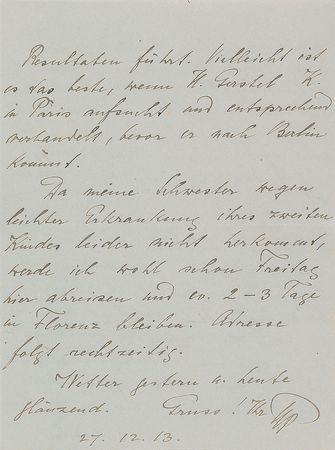 Resultaten führt. Vielleicht ist
es das beste, wenn H. Gerstel K.
in Paris aufsucht und entsprechend
verhandelt, bevor er nach Berlin
kommt.
Da meine Schwester wegen
leichter Erkrankung ihres zweiten
Kindes leider nicht herkommt,
werde ich wohl schon Freitag
hier abreisen und ev. 2-3 Tage
in Florenz bleiben. Adresse
folgt rechtzeitig.
Wetter gestern u. heute
glänzend. Gruss! Ihr
27.12.13.